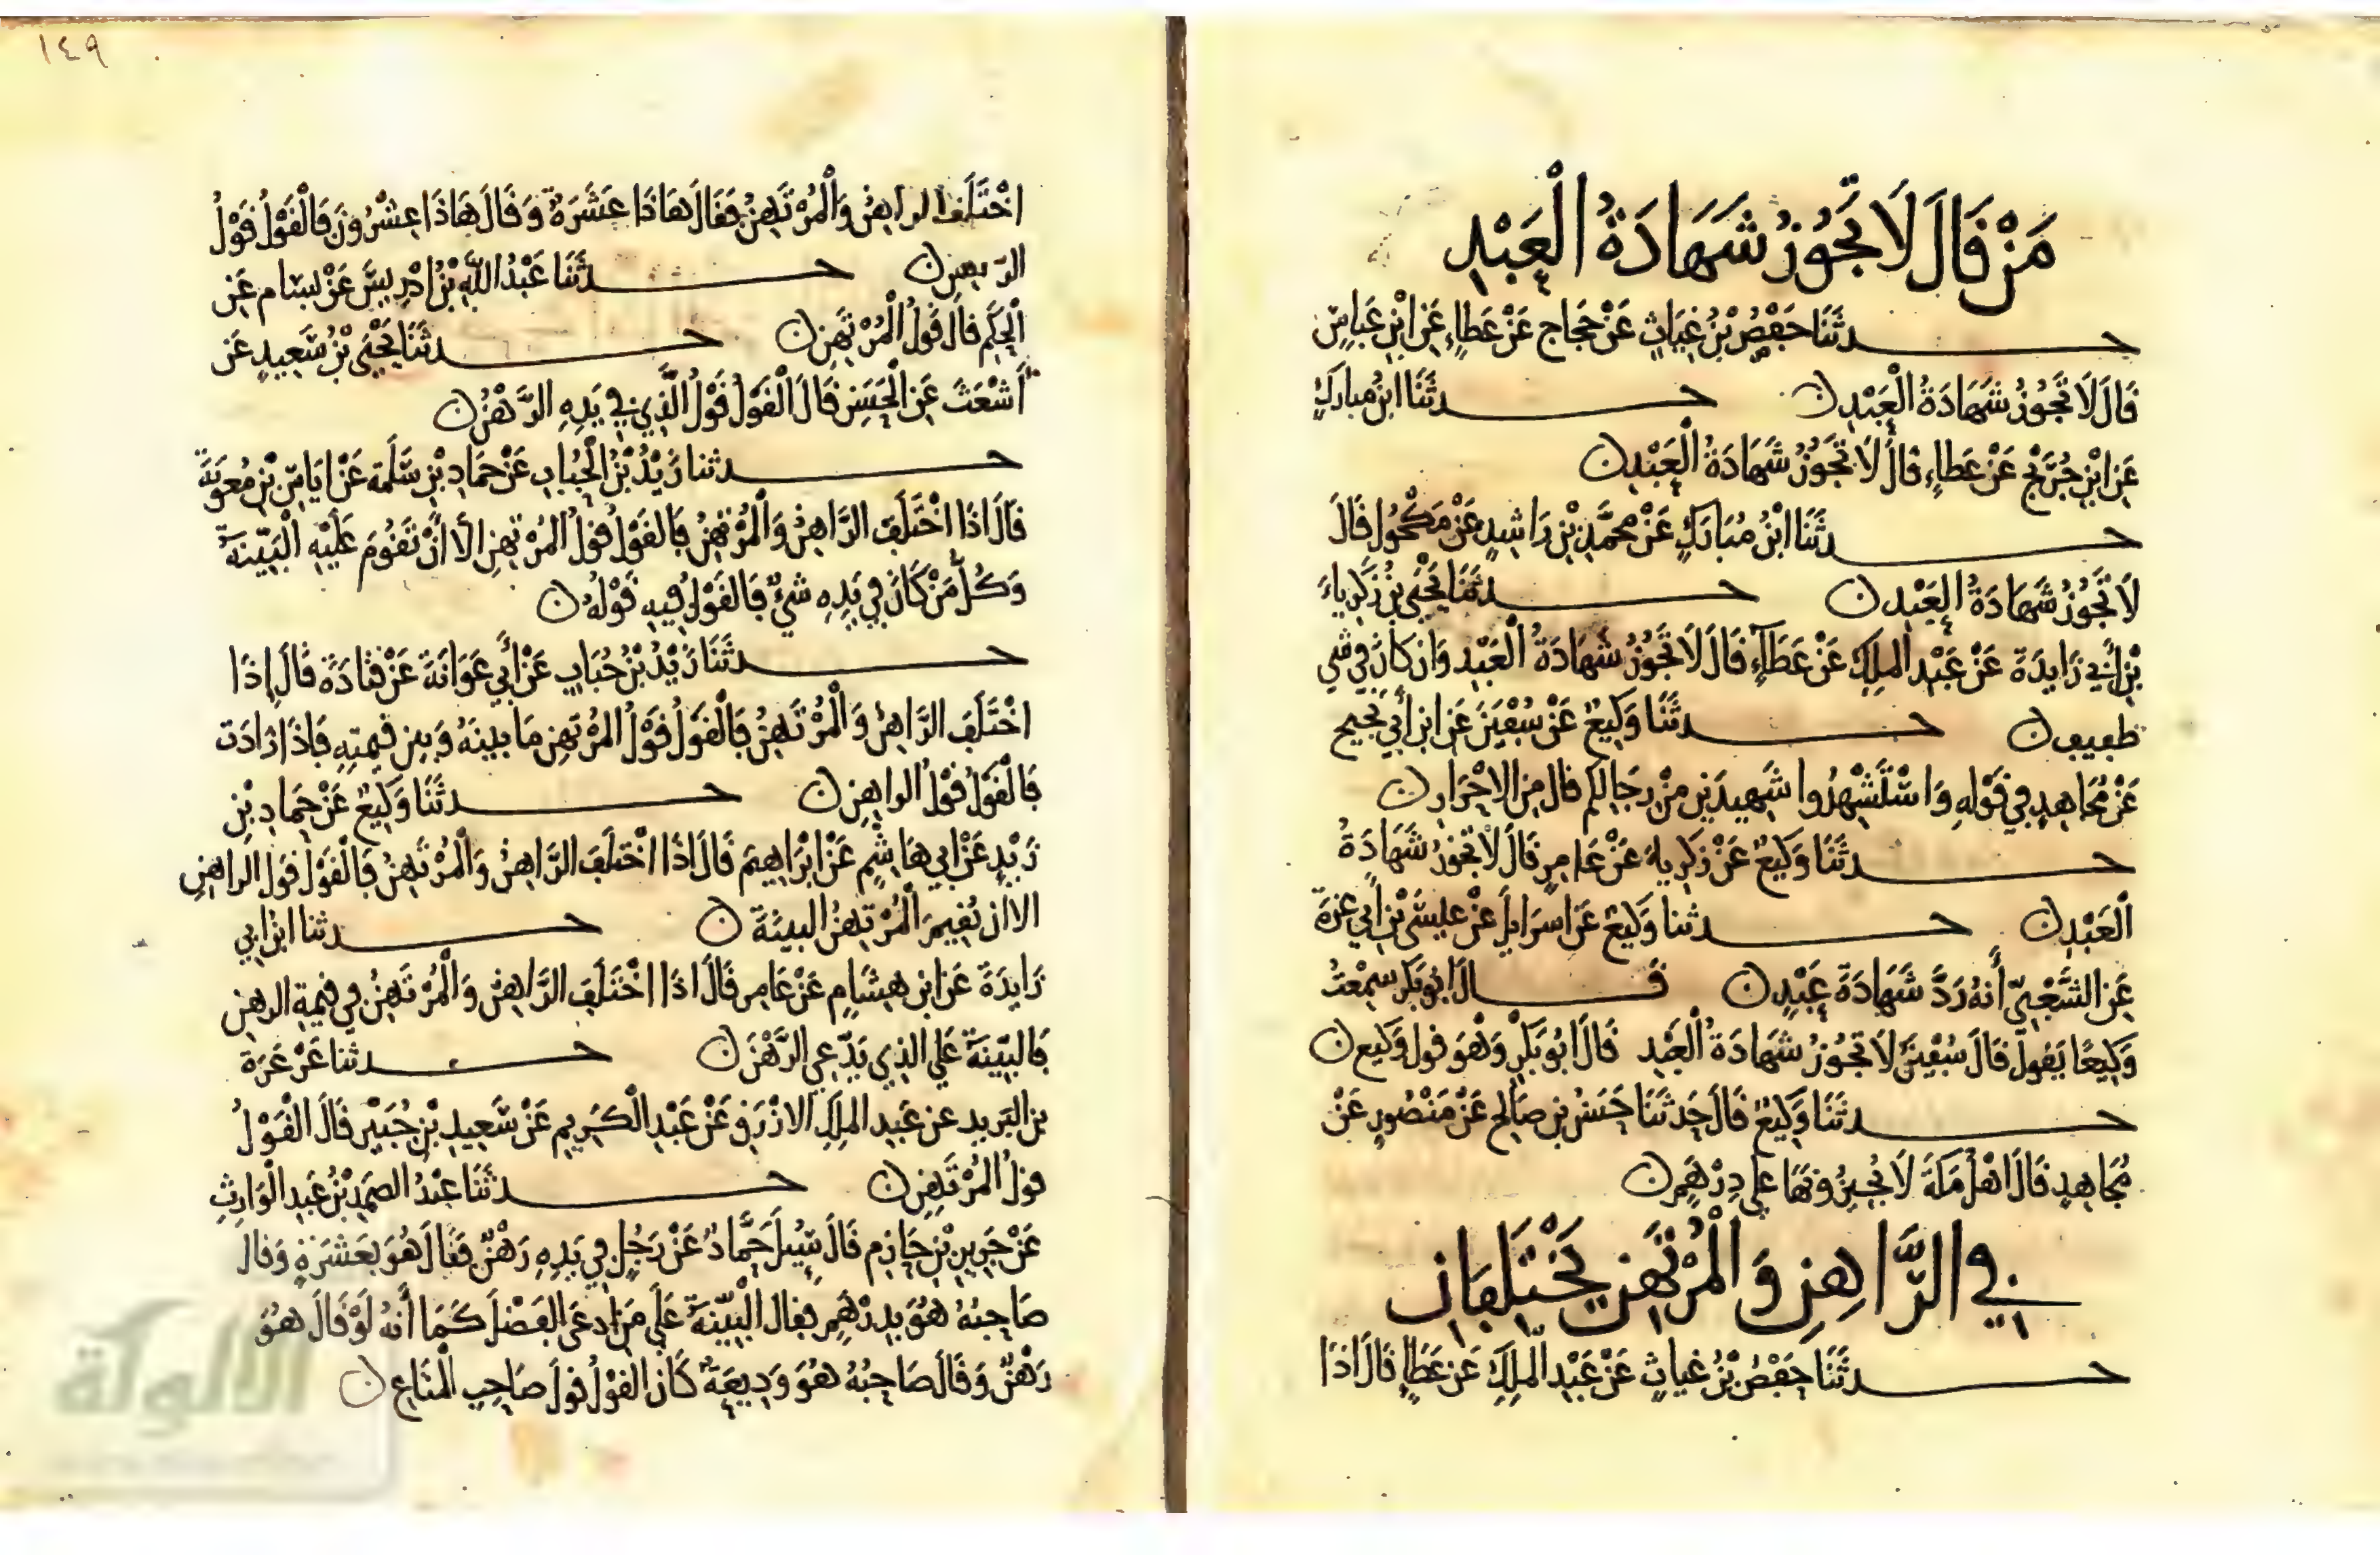 مَنْ قَالَ لَا تَجُوزُ شَهَادَةُ الْعَبْدِ
حدثَنَا حَفْصُ بْنُ غِيَاثٍ عَنْ حَجاج عَنْ عَطاءٍ عَنِ ابْنِ عَباسٍ
قَالَ لَا تَجُوزُ شَهَادَةُ الْعَبْدِ ن حدثَنَا ابنُ مبارَكٍ
عَنِ ابْنِ جُرَيْجٍ عَنْ عَطاءٍ قَالَ لَا تَجُوزُ شَهَادَةُ الْعَبْدِ ن
حدثَنَا ابْنُ مُبَارَكٍ عَنْ مُحَمَّدِ بْنِ رَاشِدٍ عَنْ مَكْحُولٍ قَالَ
لَا تَجُوزُ شَهَادَةُ الْعَبْدِ ن حدثَنَا يَحْيَى بْنُ زَكَرِياءَ
بْنِ أَبِي زَايِدَةَ عَنْ عَبْدِ الملِكِ عَنْ عَطَآءٍ قَالَ لَا تَجُوزُ شَهَادَةُ الْعَبْدِ وَان كَانَ فِي شي
طفيف ن حدثَنَا وَكِيعٌ عَنْ سُفْيَنَ عَنِ ابن أَبِي نَجِيح
عَنْ مُجَاهِدٍ فِي قَوْلِهِ وَاسْتَشْهِدُوا شَهِيدَيْنِ مِنْ رِجَالِكم قال مِنَ الاحْرَارِ ن
حدثَنَا وَكِيعٌ عَنْ زَكَرِياءَ عَنْ عَامِرٍ قَالَ لَا تَجُوزُ شَهَادَةُ
الْعَبْدِ ن حدثنا وَكِيعٌ عَنِ اسرَايلَ عَنْ عِيسَى بْنِ أَبِي عَزَةَ
عَنِ الشَّعْبِيِّ أَنهُ رَدَّ شَهَادَةَ عَبْدٍ ن قَالَ ابُو بَكر سَمِعْتُ
وَكِيعًا يَقولُ قَالَ سُفْيَنُ لَا تَجُوزُ شَهَادَةُ الْعَبْدِ قَالَ ابُو بَكْرٍ وَهُوَ قول وَكِيع ن
حدثَنَا وَكِيعٌ قَالَ حَدثَنَا حَسَنُ بن صَالح عَنْ مَنْصُورٍ عَنْ
مُجَاهِدٍ قَالَ اهْلُ مَكةَ لَا يُجِيزُونَهَا عَلى دِرْهَمٍ ن
فِي الرَّاهِنِ وَالْمُرْتَهِنِ يَخْتَلِفَانِ
حدثَنَا حَفْصُ بْنُ غِيَاثٍ عَنْ عَبْدِ الملِكِ عَن عَطَاءٍ قَالَ اذَا
١٤٩
اخْتَلَفَ الراهِنُ وَالْمُرْتَهِنُ فَقَالَ هَاذَا عَشَرَةٌ وَقَالَ هَاذَا عِشْرُونَ فَالْقَوْلُ قَوْلُ
حدثَنَا عَبْدُ اللَّهِ بْنُ ادْرِيسَ عَنْ بسام عَنِ
الْحَكَمِ قالَ قَوْلُ الْمُرْتَهِنِ ن حدثَنَا يَحْيَى بْنُ سَعِيدٍ عَن
أَشْعَثَ عَنِ الْحَسَنِ قَالَ الْقَوْلُ قَوْلُ الَّذِي فِي يَدِهِ الرَّهْنُ ن
حدثنا زَيْدُ بْنُ الْحُبَابِ عَنْ حَمَادِ بْنِ سَلَمَةَ عَنْ ايَاسِ بْنِ مُعَوِيَةَ
قَالَ اذَا اخْتَلَفَ الرَّاهِنُ وَالْمُرْتَهِنُ فَالقَوْلُ قَولُ المُرْتَهِنِ الَا انْ تَقُومَ عَلَيْهِ الْبَيِّنَةُ
وَكُلُّ مَنْ كَانَ فِي يَدِهِ شَيْءٌ فَالقَوْلُ فِيهِ قَوْلُهُ ن
حدثَنَا زَيْدُ بْنُ حُبَابٍ عَنْ أَبِي عَوَانَةَ عَنْ قَتَادَةَ قَالَ إِذَا
اخْتَلَفَ الرَّاهِنُ وَالْمُرْتَهِنُ فَالْقَوْلُ قَوْلُ المُرْتَهِنِ مَا بينَهُ وَبين قيمتِهِ فَاذَا زَادَت
فَالْقَوْلُ قَوْلُ الراهِنِ ن حدثَنَا وَكِيعٌ عَنْ حَمادِ بْنِ
زَيْدٍ عَنْ ابي هَاشِمٍ عَنْ ابْرَاهِيمَ قَالَ اذَا اخْتَلَفَ الرَّاهِنُ وَالْمُرْتَهِنُ فَالْقَوْلُ قَولُ الراهنِ
الا ان يُقِيمَ الْمُرْتَهِنُ البينَةَ ن حدثنا ابن ابي
زَايدَةَ عَن ابن هِشَامٍ عَنْ عَامِرٍ قَالَ اذَا اخْتَلَفَ الرَّاهِنُ وَالْمُرْتَهِنُ فِي قيمةِ الرهنِ
فَالبَيِّنةُ عَلى الذِي يَدَّعِي الرَّهْنَ ن حدثنا عَرْعَرَة
بن البَرِيدِ عن عَبدِ الملِكِ الازْرَقِ عَنْ عَبْدِ الْكَرِيمِ عَنْ سَعِيدِ بْنِ جُبَيْرٍ قَالَ الْقَوْلُ
قولُ الْمُرْتَهِنِ ن حدثَنَا عَبْدُ الصمَدِ بْنُ عَبدِ الْوَارِثِ
عَنْ جَرِيرِ بْنِ حَازِمٍ قَالَ سُيِلَ حَمَّادٌ عَنْ رَجُلٍ فِي يَدِهِ رَهْنٌ فَقَالَ هُوَ بِعَشَرَةٍ وَقَالَ
صَاحِبُهُ هُوَ بِدِرْهَمٍ فقال الْبَيِّنَةُ عَلَى مَنِ ادعَى الفَضْلَ كَمَا أَنهُ لَوْ قَالَ هُوَ
رَهْنٌ وَقَالَ صَاحِبُهُ هُوَ وَدِيعَةٌ كَانَ القوْلُ قولَ صَاحِبِ الْمَتَاعِ ن
الألوكة